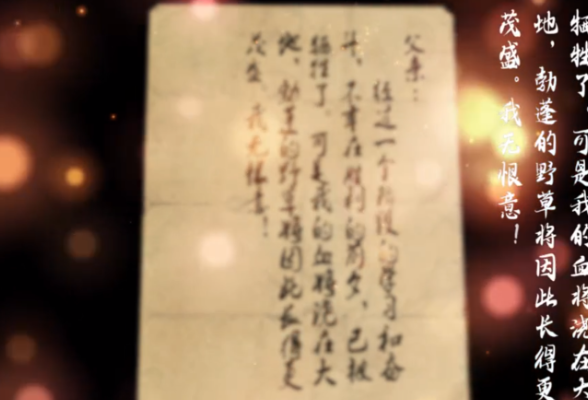 牺牲了，可是我的血将浇在大
地，勃蓬的野草将因此长得更
茂盛。我无恨意！
父亲：
经过一个阶段的学习和奋
斗，不幸在胜利的前夕，已被
牺牲了，可是我的血将浇在大
地，勃蓬的野草将因此长得更
茂盛。我无恨意！